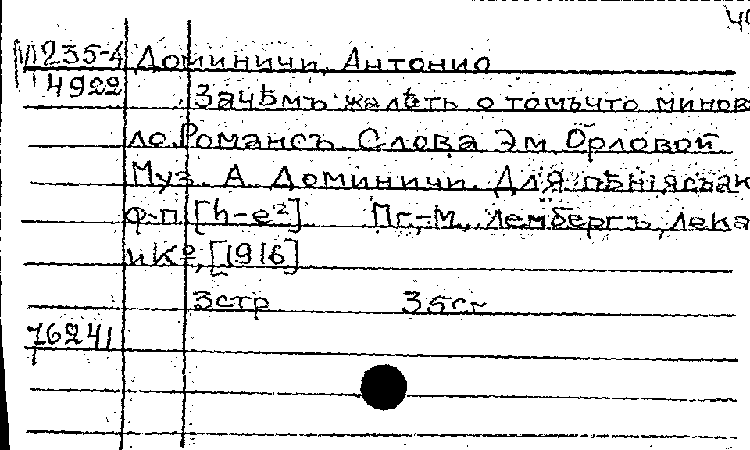 М 235-4 Доминичи, Антонио
4922 Зачѣмъ жалѣть о томъ что минова
ло. Романсъ. Слова Эм. Орловой
Муз. А. Доминичи. Для пѣнія съ ак
ф-п. [h-e²]. Пг.-М., Лембергъ, Лека
и К⁰, [1916]
3 стр 35 с
16241